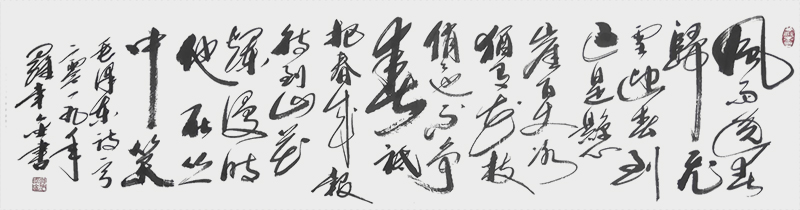 風雨送春
歸飛
雪迎春到
已是懸
崖百丈冰
猶有花枝
俏也不爭
春祇
把春來報
待到山花
爛漫時
他在丛
中笑
毛澤東詩
二零一九年
羅書